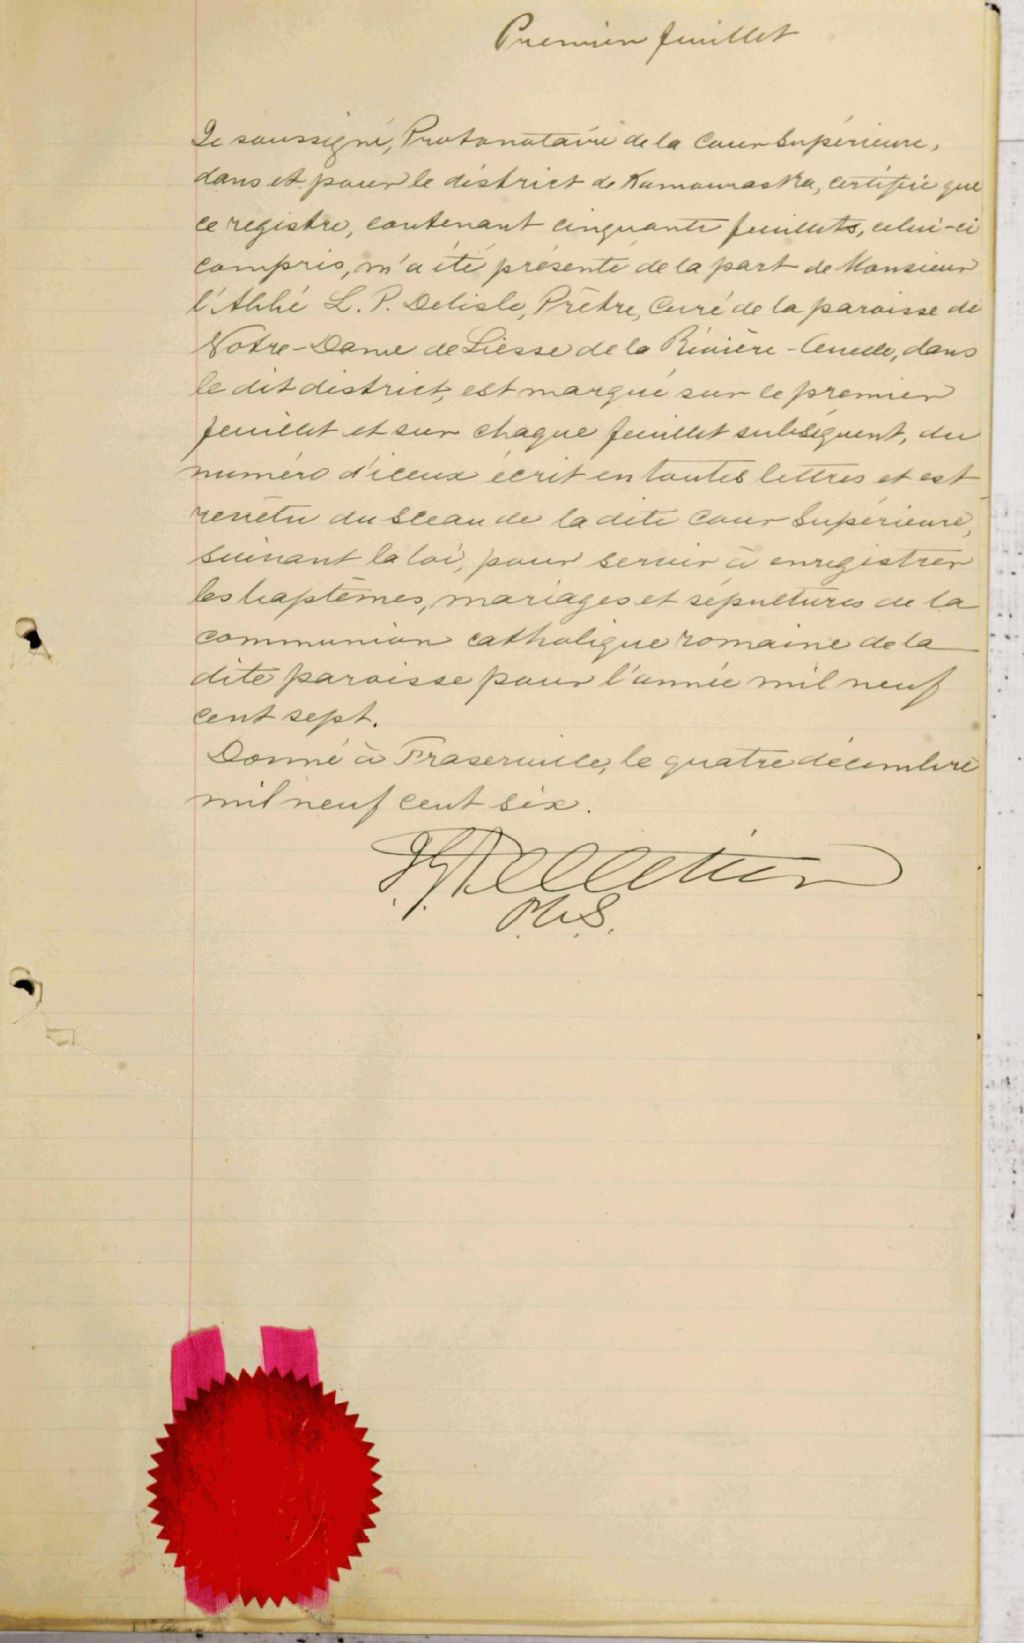 Premier feuillet
Je soussigné, Protonotaire de la Cour Supérieure,
dans et pour le district de Kamouraska, certifie que
ce registre, contenant cinquante feuillets, celui-ci
compris, m'a été présenté de la part de Monsieur
l'Abbé L. P. Delisle, Prêtre, Curé de la paroisse de
Notre-Dame de Liesse de la Rivière-Ouelle, dans
le dit district, est marqué sur le premier
feuillet et sur chaque feuillet subséquent, du
numéro d'iceux écrit en toutes lettres et est
revêtu du sceau de la dite Cour Supérieure,
suivant la loi, pour servir à enregistrer
les baptêmes, mariages et sépultures de la
communion catholique romaine de la
dite paroisse pour l'année mil neuf
cent sept.
Donné à Fraserville, le quatre décembre
mil neuf cent six.
Pelletier
P.C.S.